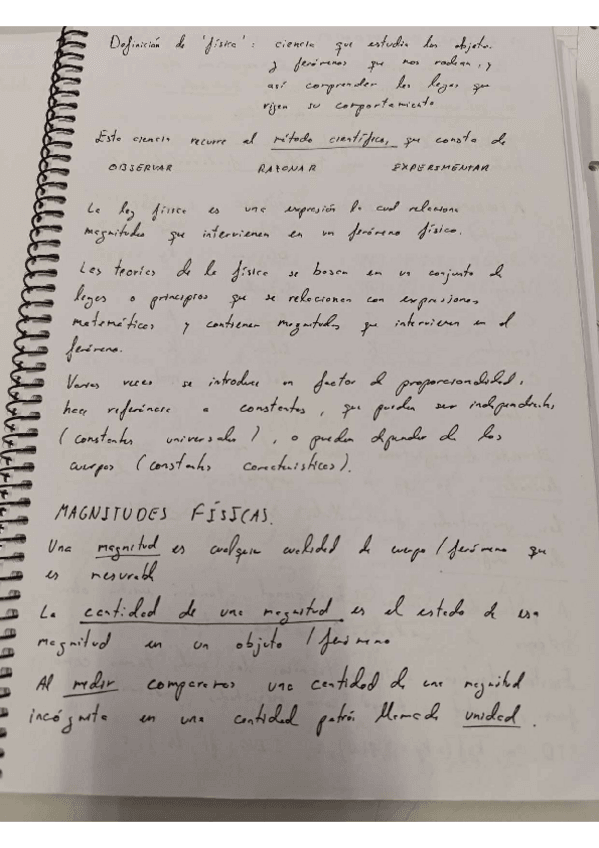 Definición de 'física': ciencia que estudia los objetos
y fenómenos que nos rodean, y
así comprender las leyes que
rigen su comportamiento
Esta ciencia recurre al método científico, que consta de
OBSERVAR RAZONAR EXPERIMENTAR
La ley física es una expresión la cual relaciona
magnitudes que intervienen en un fenómeno físico.
Las teorías de la física se basan en un conjunto de
leyes o principios que se relacionan con expresiones
matemáticas y contienen magnitudes que intervienen en el
fenómeno.
Varias veces se introduce un factor de proporcionalidad,
hace referencia a constantes, que pueden ser independientes
(constantes universales), o pueden depender de los
cuerpos (constantes características).
MAGNITUDES FÍSICAS.
Una magnitud es cualquier cualidad de cuerpo/fenómeno que
es mesurable
La cantidad de una magnitud es el estado de esa
magnitud en un objeto/fenómeno
Al medir comparamos una cantidad de una magnitud
incógnita en una cantidad patrón llamada unidad.